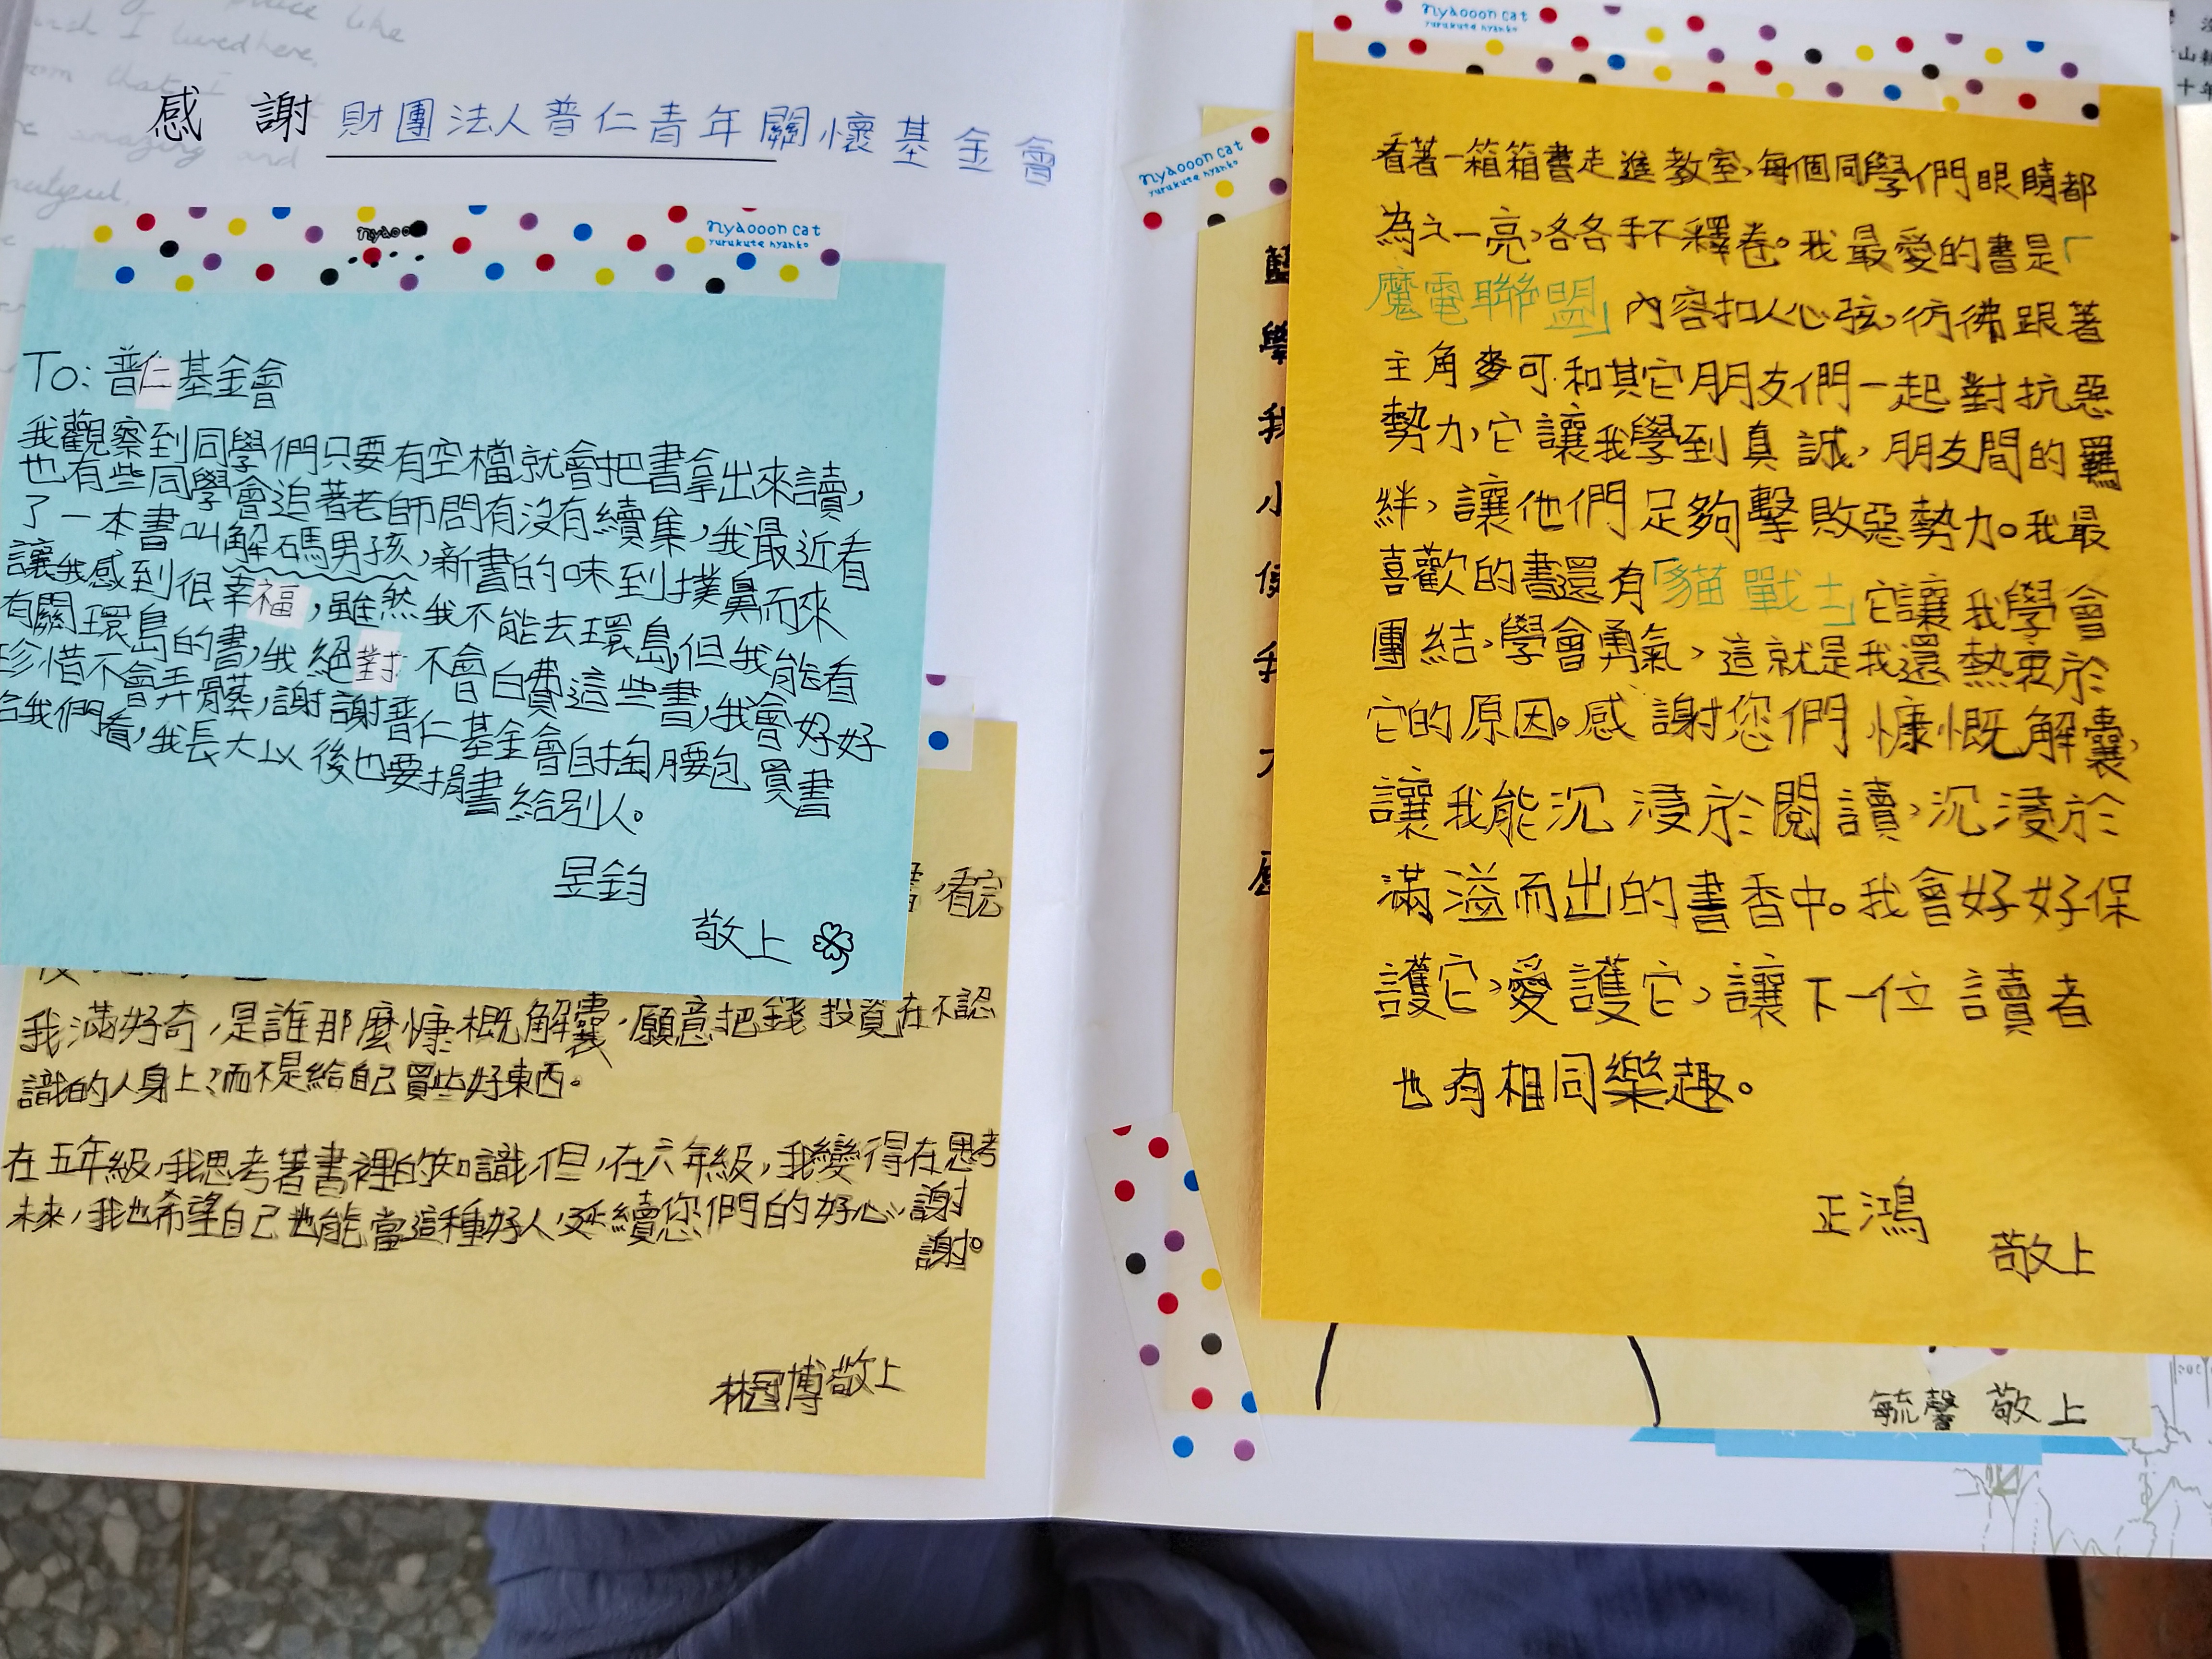 感謝 財團法人普仁青年關懷基金會
nyaooon cat
yurukute nyanko
To: 普仁基金會
我觀察到同學們只要有空檔就會把書拿出來讀,
也有些同學會追著老師問有沒有續集,我最近看
了一本書叫解碼男孩,新書的味到撲鼻而來
讓我感到很幸福,雖然我不能去環島,但我能看
有關環島的書,我絕對不會白費這些書,我會好好
珍惜不會弄髒,謝謝普仁基金會自掏腰包買書
給我們看,我長大以後也要捐書給別人。
昱鈞
敬上
看完
我滿好奇,是誰那麼慷概解囊,願意把錢投資在不認
識的人身上?而不是給自己買些好東西。
在五年級,我思考著書裡的知識,但,在六年級,我變得在思考
未來,我也希望自己也能當這種好人,延續您們的好心,謝
謝。
林冠博敬上
nyaooon cat
yurukute nyanko
nyaooon cat
yurukute nyanko
看著一箱箱書走進教室,每個同學們眼睛都
為之一亮,各各手不釋卷。我最愛的書是「
魔電聯盟」內容扣人心弦,彷彿跟著
主角麥可和其它朋友們一起對抗惡
勢力,它讓我學到真誠,朋友間的羈
絆,讓他們足夠擊敗惡勢力。我最
喜歡的書還有「貓戰士」它讓我學會
團結,學會勇氣,這就是我還熱衷於
它的原因。感謝您們慷慨解囊,
讓我能沉浸於閱讀,沉浸於
滿溢而出的書香中。我會好好保
護它,愛護它,讓下一位讀者
也有相同樂趣。
正鴻
敬上
毓馨 敬上